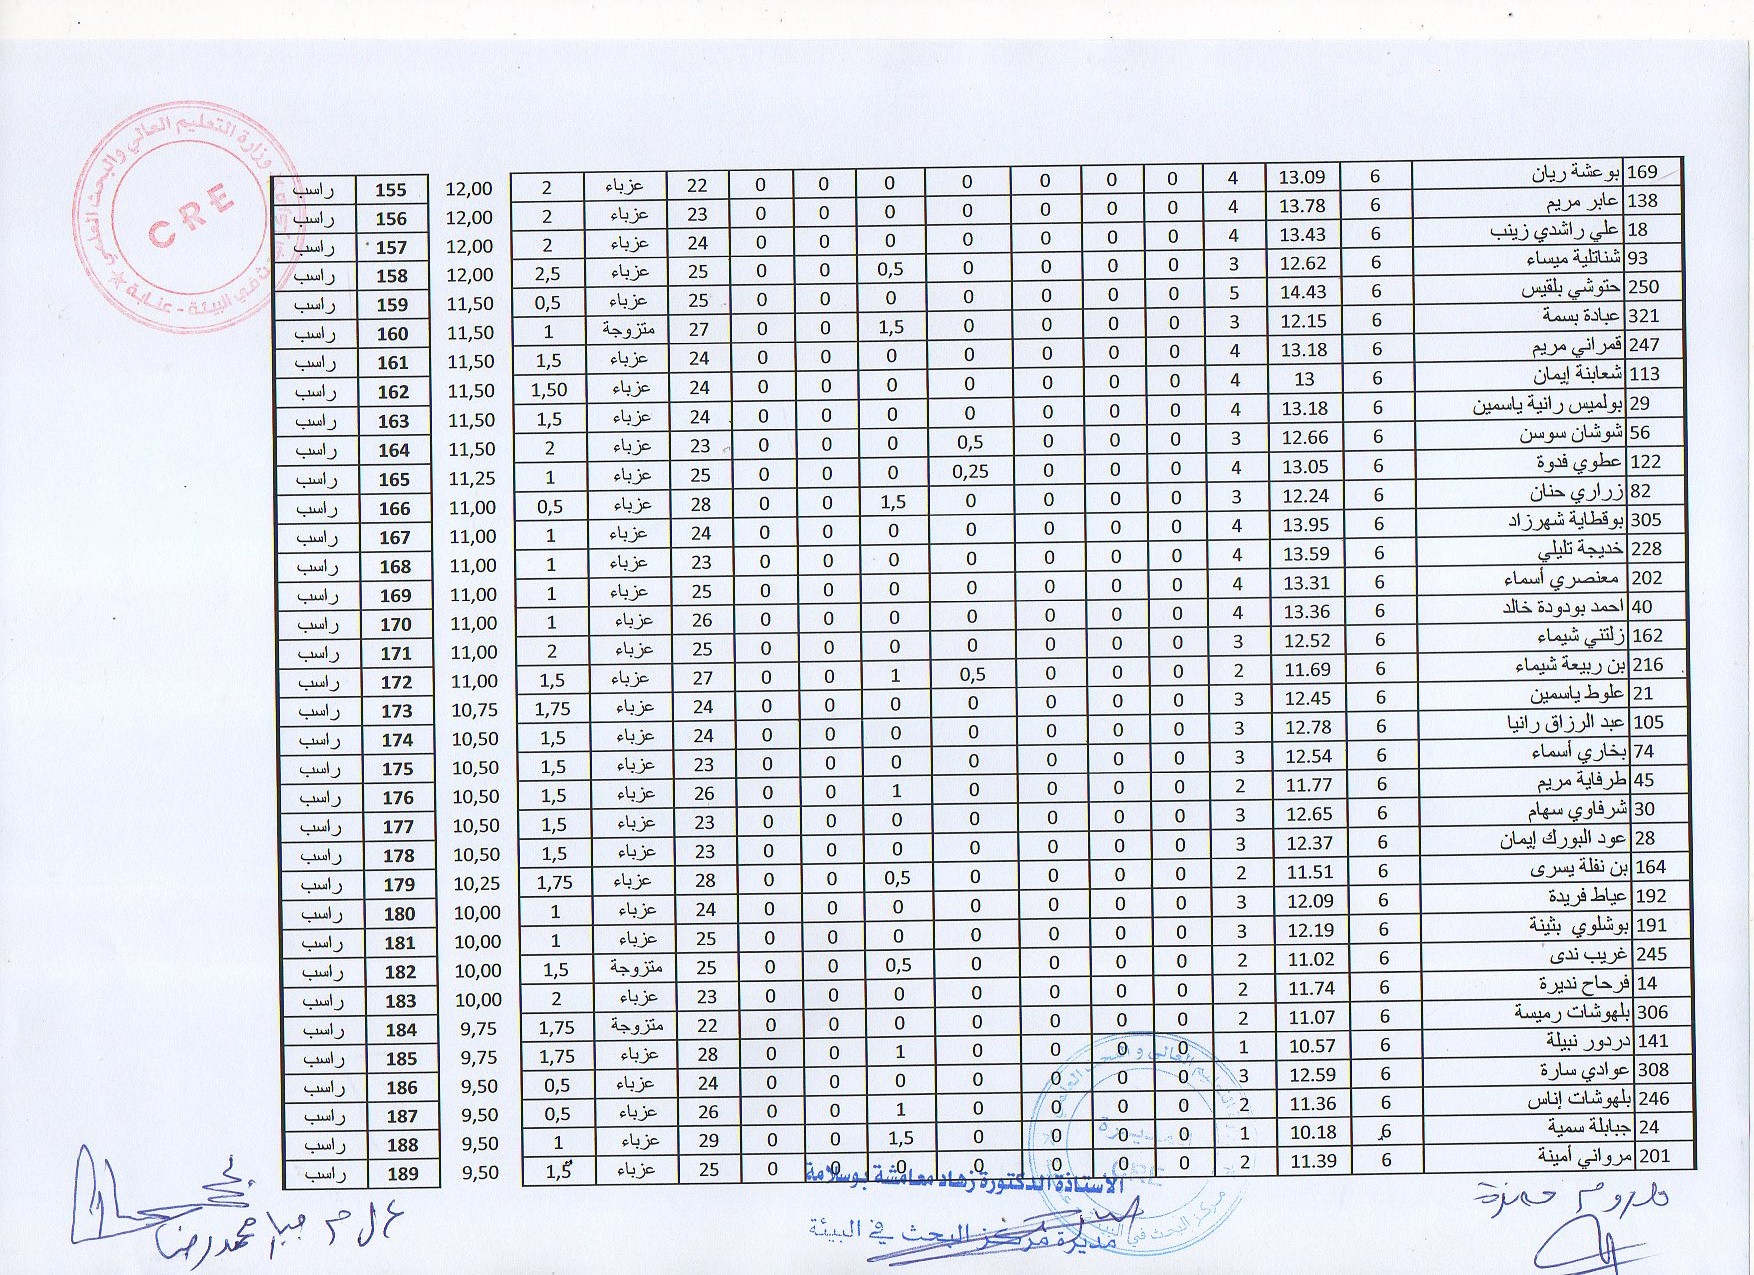 وزارة التعليم العالي والبحث العلمي
CRE
169 بوعشة ريان 6 13.09 4 0 0 0 0 0 0 0 22 عزباء 2 12,00 155 راسب
138 عابر مريم 6 13.78 4 0 0 0 0 0 0 0 23 عزباء 2 12,00 156 راسب
18 علي راشدي زينب 6 13.43 4 0 0 0 0 0 0 0 24 عزباء 2 12,00 157 راسب
93 شناتلية ميساء 6 12.62 3 0 0 0 0 0,5 0 0 25 عزباء 2,5 12,00 158 راسب
250 حتوشي بلقيس 6 14.43 5 0 0 0 0 0 0 0 25 عزباء 0,5 11,50 159 راسب
321 عبادة بسمة 6 12.15 3 0 0 0 0 1,5 0 0 27 متزوجة 1 11,50 160 راسب
247 قمراني مريم 6 13.18 4 0 0 0 0 0 0 0 24 عزباء 1,5 11,50 161 راسب
113 شعابنة إيمان 6 13 4 0 0 0 0 0 0 0 24 عزباء 1,50 11,50 162 راسب
29 بولميس رانية ياسمين 6 13.18 4 0 0 0 0 0 0 0 24 عزباء 1,5 11,50 163 راسب
56 شوشان سوسن 6 12.66 3 0 0 0 0,5 0 0 0 23 عزباء 2 11,50 164 راسب
122 عطوي فدوة 6 13.05 4 0 0 0 0,25 0 0 0 25 عزباء 1 11,25 165 راسب
82 زراري حنان 6 12.24 3 0 0 0 0 1,5 0 0 28 عزباء 0,5 11,00 166 راسب
305 بوقطاية شهرزاد 6 13.95 4 0 0 0 0 0 0 0 24 عزباء 1 11,00 167 راسب
228 خديجة تليلي 6 13.59 4 0 0 0 0 0 0 0 23 عزباء 1 11,00 168 راسب
202 معنصري أسماء 6 13.31 4 0 0 0 0 0 0 0 25 عزباء 1 11,00 169 راسب
40 احمد بودودة خالد 6 13.36 4 0 0 0 0 0 0 0 26 عزباء 1 11,00 170 راسب
162 زلتني شيماء 6 12.52 3 0 0 0 0 0 0 0 25 عزباء 2 11,00 171 راسب
216 بن ربيعة شيماء 6 11.69 2 0 0 0 0,5 1 0 0 27 عزباء 1,5 11,00 172 راسب
21 علوط ياسمين 6 12.45 3 0 0 0 0 0 0 0 24 عزباء 1,75 10,75 173 راسب
105 عبد الرزاق رانيا 6 12.78 3 0 0 0 0 0 0 0 24 عزباء 1,5 10,50 174 راسب
74 بخاري أسماء 6 12.54 3 0 0 0 0 0 0 0 23 عزباء 1,5 10,50 175 راسب
45 طرفاية مريم 6 11.77 2 0 0 0 0 1 0 0 26 عزباء 1,5 10,50 176 راسب
30 شرفاوي سهام 6 12.65 3 0 0 0 0 0 0 0 23 عزباء 1,5 10,50 177 راسب
28 عود البورك إيمان 6 12.37 3 0 0 0 0 0 0 0 23 عزباء 1,5 10,50 178 راسب
164 بن نفلة يسرى 6 11.51 2 0 0 0 0 0,5 0 0 28 عزباء 1,75 10,25 179 راسب
192 عياط فريدة 6 12.09 3 0 0 0 0 0 0 0 24 عزباء 1 10,00 180 راسب
191 بوشلوي بثينة 6 12.19 3 0 0 0 0 0 0 0 25 عزباء 1 10,00 181 راسب
245 غريب ندى 6 11.02 2 0 0 0 0 0,5 0 0 25 متزوجة 1,5 10,00 182 راسب
14 فرحاح نديرة 6 11.74 2 0 0 0 0 0 0 0 23 عزباء 2 10,00 183 راسب
306 بلهوشات رميسة 6 11.07 2 0 0 0 0 0 0 0 22 متزوجة 1,75 9,75 184 راسب
141 دردور نبيلة 6 10.57 1 0 0 0 0 1 0 0 28 عزباء 1,75 9,75 185 راسب
308 عوادي سارة 6 12.59 3 0 0 0 0 0 0 0 24 عزباء 0,5 9,50 186 راسب
246 بلهوشات إناس 6 11.36 2 0 0 0 0 1 0 0 26 عزباء 0,5 9,50 187 راسب
24 جبابلة سمية 6 10.18 1 0 0 0 0 1,5 0 0 29 عزباء 1 9,50 188 راسب
201 مرواني أمينة 6 11.39 2 0 0 0 0 0 0 0 25 عزباء 1,5 9,50 189 راسب
الأستاذة الدكتورة زهاد معافشة بوسلامة
مديرة مركز البحث في البيئة